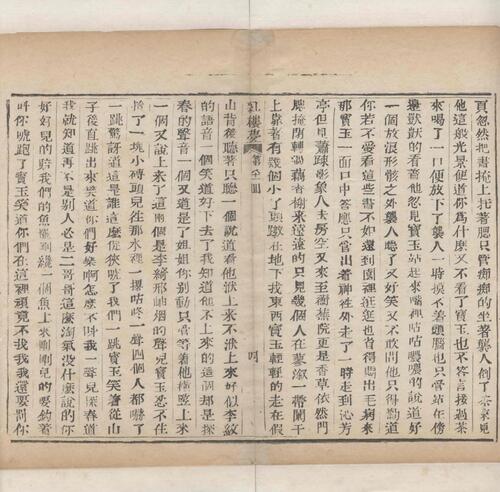 頁忽然把書掩上托著腮只管痴痴的坐著襲人倒了茶來見
他這般光景便道你爲什麼又不看了寶玉也不答言接過茶
來喝了一口便放下了襲人一時摸不着頭腦也只管站在傍
邊獃獃的看着他忽見寶玉站起來嘴裡咕咕噥噥的說道好
一個放浪形骸之外襲人聽了又好笑又不敢問他只得勸道
你若不愛看這些書不如還到園裡逛逛也省得悶出毛病來
那寶玉一面口中答應只管出着神往外走了一時走到沁芳
亭但見蕭疎景象人去房空又來至蘅蕪院更是香草依然門
牕掩閉轉過藕香榭來遠遠的只見幾個人在蓼溆一帶闌干
上靠着有幾個小丫頭蹲在地下找東西寶玉輕輕的走在假
紅樓夢 第八十一回 四
山背後聽著只聽一個說道看他洑上來不洑上來好似李紋
的語音一個笑道好下去了我知道他不上來的這個却是探
春的聲音一個又道是了姐姐你別動只管等着他橫竪上來
一個又說上來了這兩個是李綺邢岫烟的聲兒寶玉忍不住
拾了一塊小磚頭兒往那水裡一撂咕咚一聲四個人都嚇了
一跳驚訝道這是誰這麼促狹唬了我們一跳寶玉笑著從山
子後直跳出來笑道你們好樂啊怎麼不叫我一聲兒探春道
我就知道再不是別人必是二哥哥這麼淘氣没什麼說的你
好好兒的賠我們的魚罷剛纔一個魚上來剛剛兒的要釣着
叫你唬跑了寶玉笑道你們在這裡頑竟不找我我還要罰你